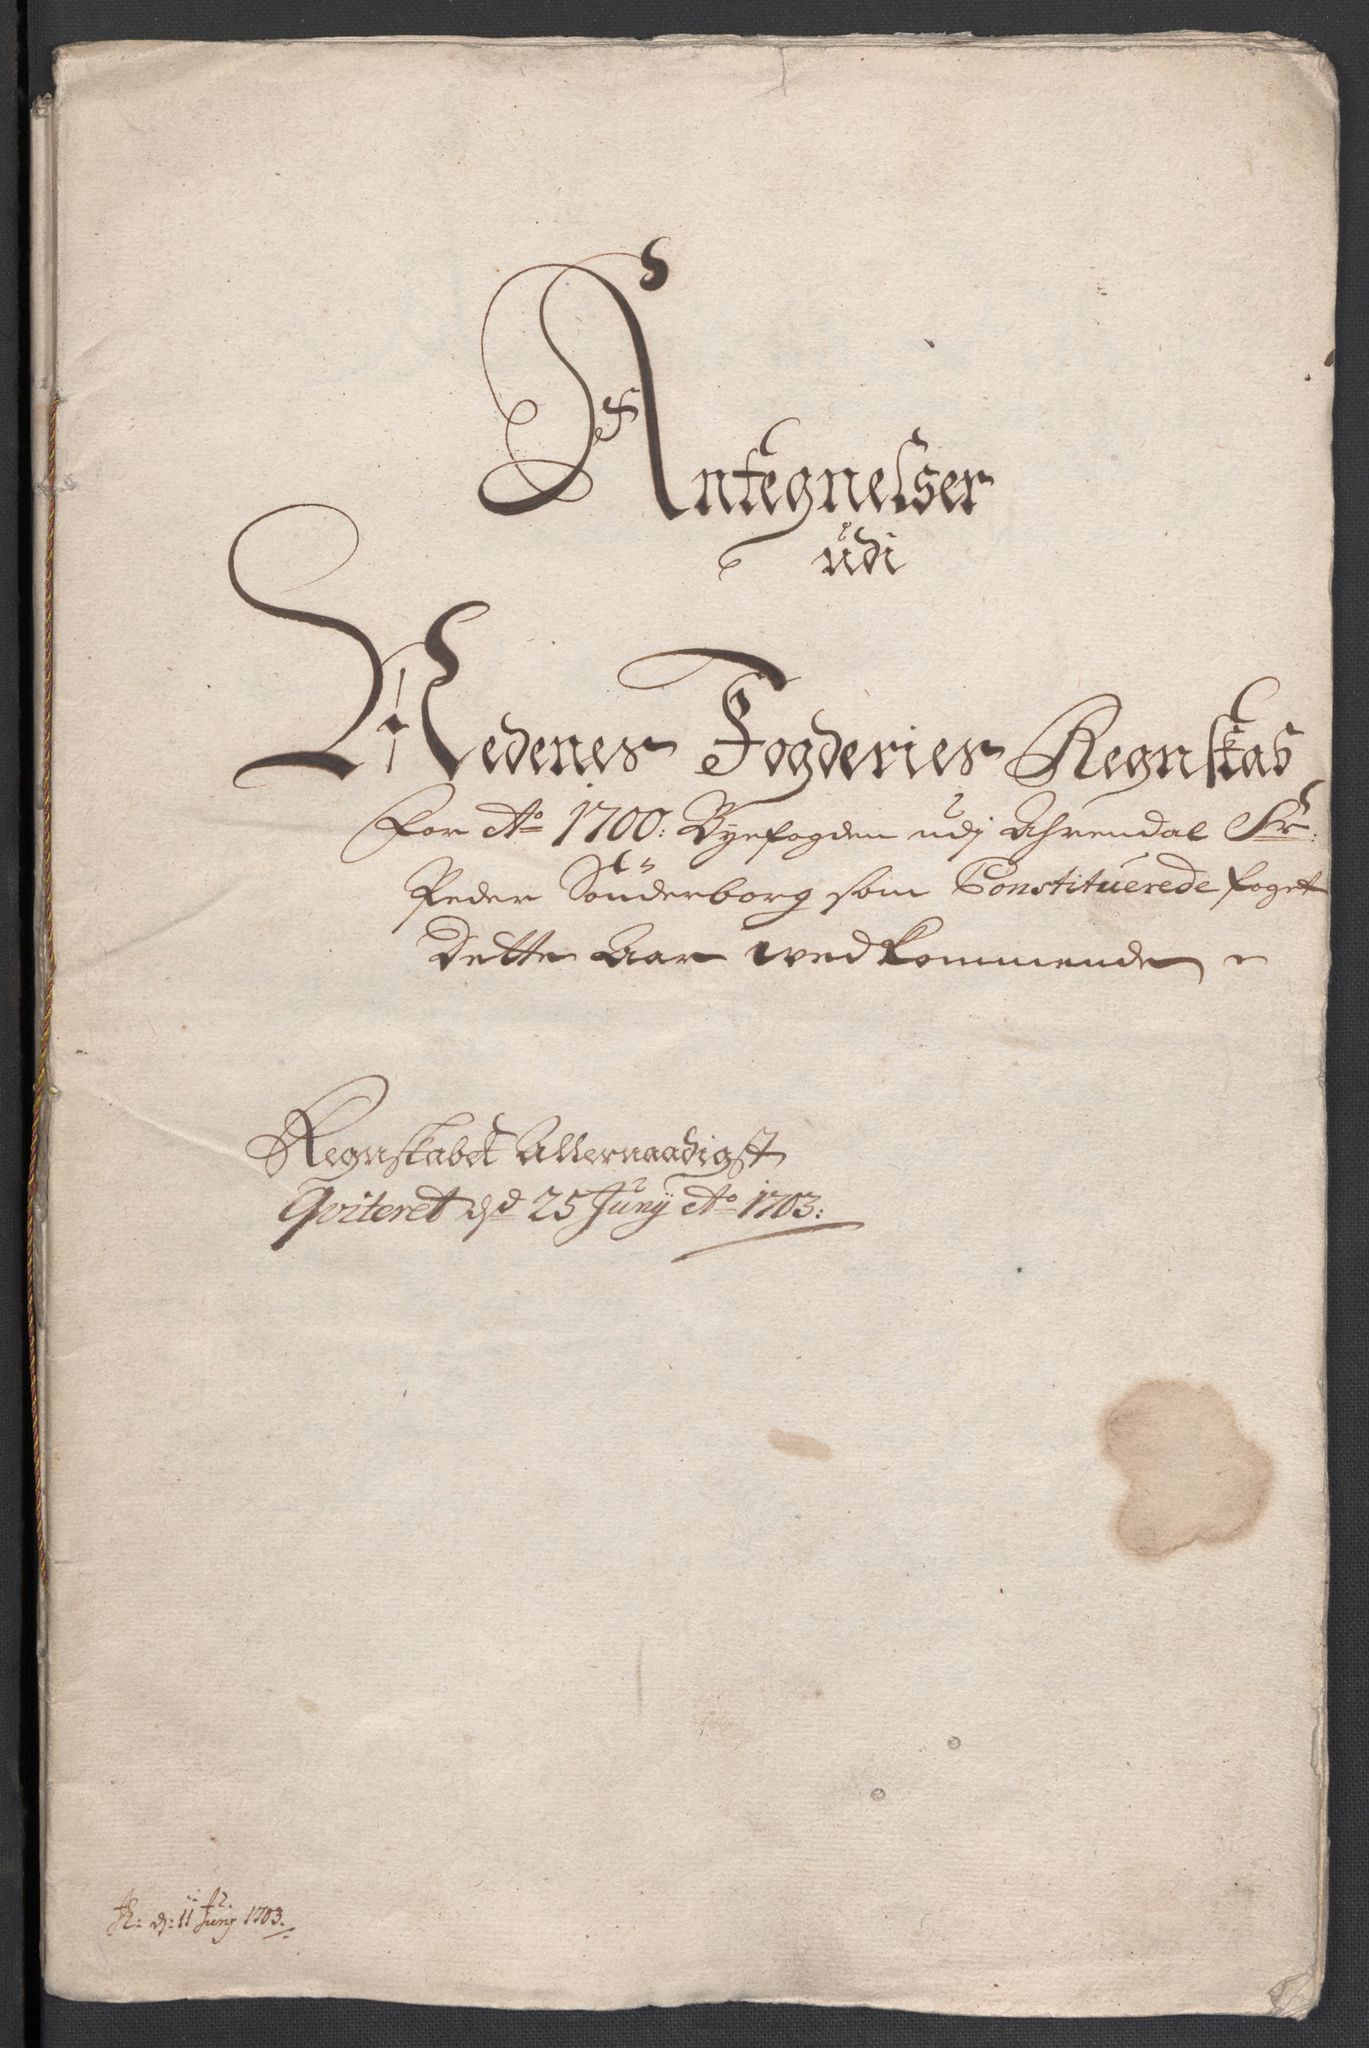 Antegnelser
udi
Nedenes Fogderies Regnskab
for Ao 1700: Byefogden udj Ahrendal Sr:
Peder Sönderborg som Constituerede foget
dette Aar vedkommende
Regnskabet Allernaadigst
Qviteret d 25 Junÿ Ao 1703:
d: 11 Junÿ 1703.